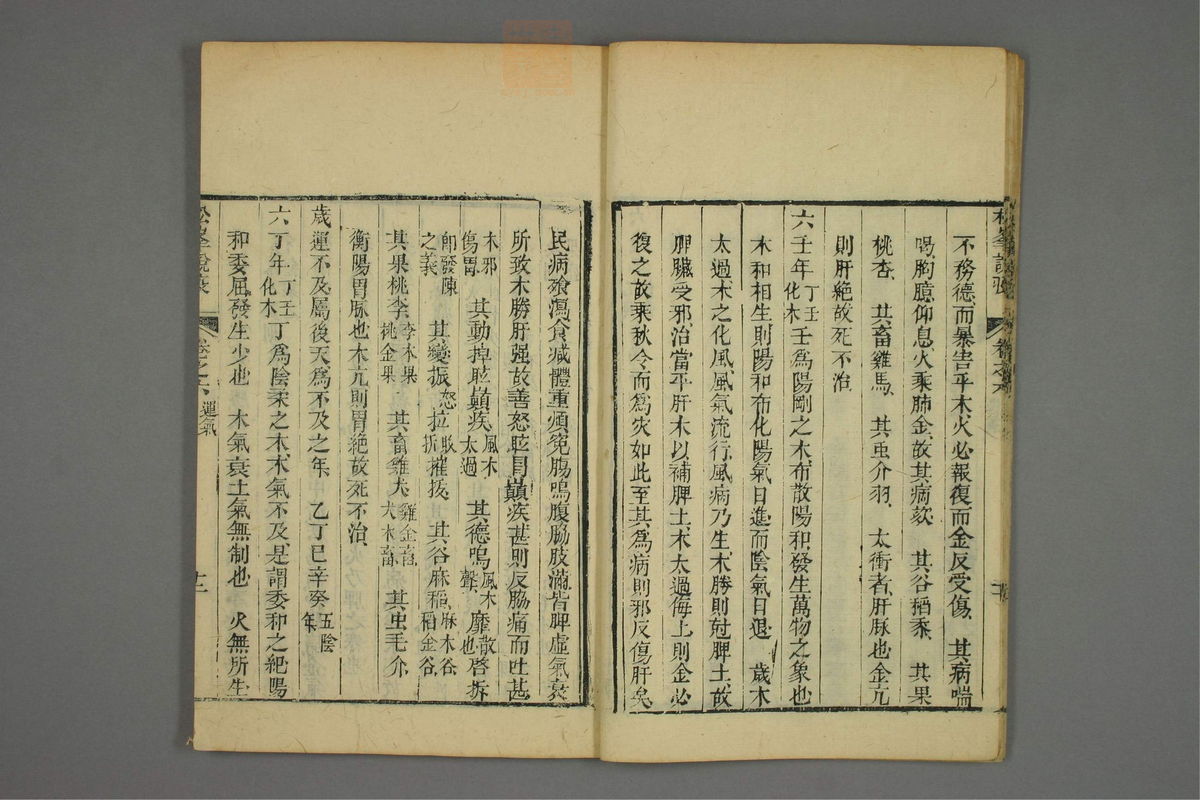 不務德而暴告平木火必報復而金反受傷 其病喘
喝胸臆仰息火乘肺金故其病欬 其谷稻黍 其果
桃杏 其畜雞馬 其虫介羽 太衝者肝脉也金亢
則肝絶故死不治
六壬年丁壬化木壬爲陽剛之木布散陽和發生萬物之象也
木和相生則陽和布化陽氣日進而陰氣日退 歲木
太過木之化風風氣流行風病乃生木勝則尅脾土故
脾臟受邪治當平肝木以補脾土木太過侮土則金必
復之故乘秋令而爲灾如此至其爲病則邪反傷肝矣
民病飱瀉食減體重煩寃腸嗚腹脇肢滿皆脾虛氣衰
所致木勝肝强故善怒眩冒巓疾甚則反脇痛而吐甚
木邪傷胃 其動掉眩巓疾風木太過 其德嗚風木聲靡散也啓拆
卽發陳之義 其變振怒拉眂折摧拔 其谷麻稻麻木谷稻金谷
其果桃李李木果桃金果 其畜雞犬雞金畜犬木畜 其虫毛介
衝陽胃脉也木亢則胃絶故死不治
歲運不及屬後天爲不及之年 乙丁巳辛癸五陰年
六丁年丁壬化木丁爲陰柔之木木氣不及是謂委和之紀陽
和委屈發生少也 木氣衰土氣無制也 火無所生
松峯說疫 卷之六 運氣 十二